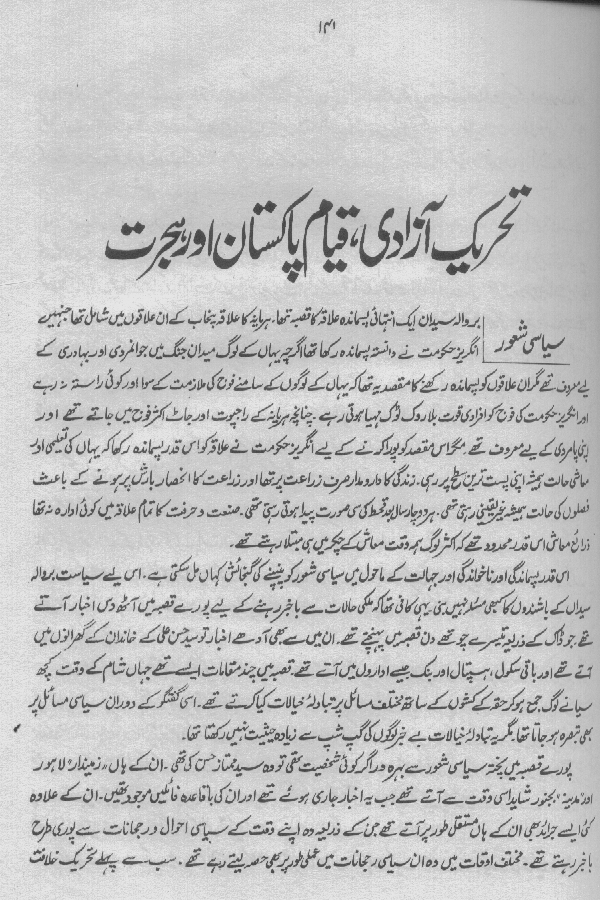 ۱۴۱
تحریک آزادی، قیام پاکستان اور ہجرت
سیاسی شعور
بروالہ سیدان ایک انتہائی پسماندہ علاقہ کا قصبہ تھا۔ ہریانہ کا علاقہ پنجاب کے ان علاقوں میں شامل تھا جنہیں
انگریز حکومت نے دانستہ پسماندہ رکھا تھا اگرچہ یہاں کے لوگ میدان جنگ میں جوانمردی اور بہادری کے
لیے معروف تھے مگر ان علاقوں کو پسماندہ رکھنے کا مقصد یہ تھا کہ یہاں کے لوگوں کے سامنے فوج کی ملازمت کے سوا اور کوئی راستہ نہ رہے
اور انگریز حکومت کی فوج کو افرادی قوت بلا روک ٹوک مہیا ہوتی رہے۔ چنانچہ ہریانہ کے راجپوت اور جاٹ اکثر فوج میں جاتے تھے اور
اپنی پامردی کے لیے معروف تھے مگر اس مقصد کو پورا کرنے کے لیے انگریز حکومت نے علاقہ کو اس قدر پسماندہ رکھا کہ یہاں کی تعلیمی اور
معاشی حالت ہمیشہ اپنی پست ترین سطح پر رہی۔ زندگی کا دارومدار صرف زراعت پر تھا اور زراعت کا انحصار بارش پر ہونے کے باعث
فصلوں کی حالت ہمیشہ غیر یقینی رہتی تھی۔ ہر دو چار سال بعد قحط کی سی صورت پیدا ہوتی رہتی تھی۔ صنعت و حرفت کا تمام علاقہ میں کوئی ادارہ نہ تھا
ذرائع معاش اس قدر محدود تھے کہ اکثر لوگ ہمہ وقت معاش کے چکر میں ہی مبتلا رہتے تھے۔
اس قدر پسماندگی اور ناخواندگی اور جہالت کے ماحول میں سیاسی شعور کو پنپنے کی گنجائش کہاں مل سکتی ہے۔ اس لیے سیاست بروالہ
سیدان کے باشندوں کا کبھی مسئلہ نہیں بنی یہی کافی تھا کہ ملکی حالات سے باخبر رہنے کے لیے پورے قصبہ میں آٹھ دس اخبار آتے
تھے جو ڈاک کے ذریعہ تیسرے چوتھے دن قصبہ میں پہنچتے تھے۔ ان میں سے بھی آدھے اخبار تو سید حسن علی کے خاندان کے گھرانوں میں
آتے تھے اور باقی سکول، ہسپتال اور بنک جیسے اداروں میں آتے تھے۔ قصبہ میں چند مقامات ایسے تھے جہاں شام کے وقت کچھ
سیانے لوگ جمع ہو کر حقہ کے کشوں کے ساتھ مختلف مسائل پر تبادلۂ خیالات کیا کرتے تھے۔ اسی گفتگو کے دوران سیاسی مسائل پر
بھی تبصرہ ہو جاتا تھا مگر یہ تبادلۂ خیالات بے خبر لوگوں کی گپ شپ سے زیادہ حیثیت نہیں رکھتا تھا۔
پورے قصبہ میں پختہ سیاسی شعور سے بہرہ ور اگر کوئی شخصیت تھی تو وہ سید ممتاز حسن کی تھی۔ ان کے ہاں "زمیندار" لاہور
اور "مدینہ" بجنور شاید اسی وقت سے آتے تھے جب یہ اخبار جاری ہوئے تھے اور ان کی باقاعدہ فائلیں موجود تھیں۔ ان کے علاوہ
کئی ایسے جرائد بھی ان کے ہاں مستقل طور پر آتے تھے جن کے ذریعہ وہ اپنے وقت کے سیاسی احوال و رجحانات سے پوری طرح
باخبر رہتے تھے۔ مختلف اوقات میں وہ ان سیاسی رجحانات میں عملی طور پر بھی حصہ لیتے رہے تھے۔ سب سے پہلے تحریک خلافت